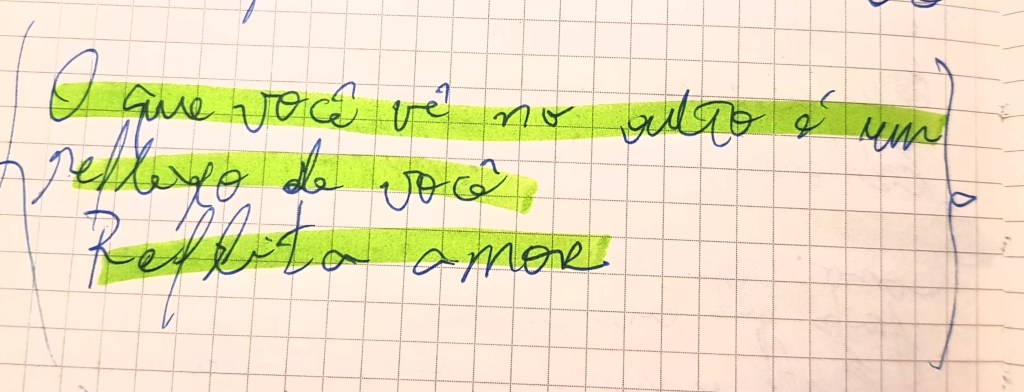 O que você vê no outro é um
reflexo de você
Reflita amor